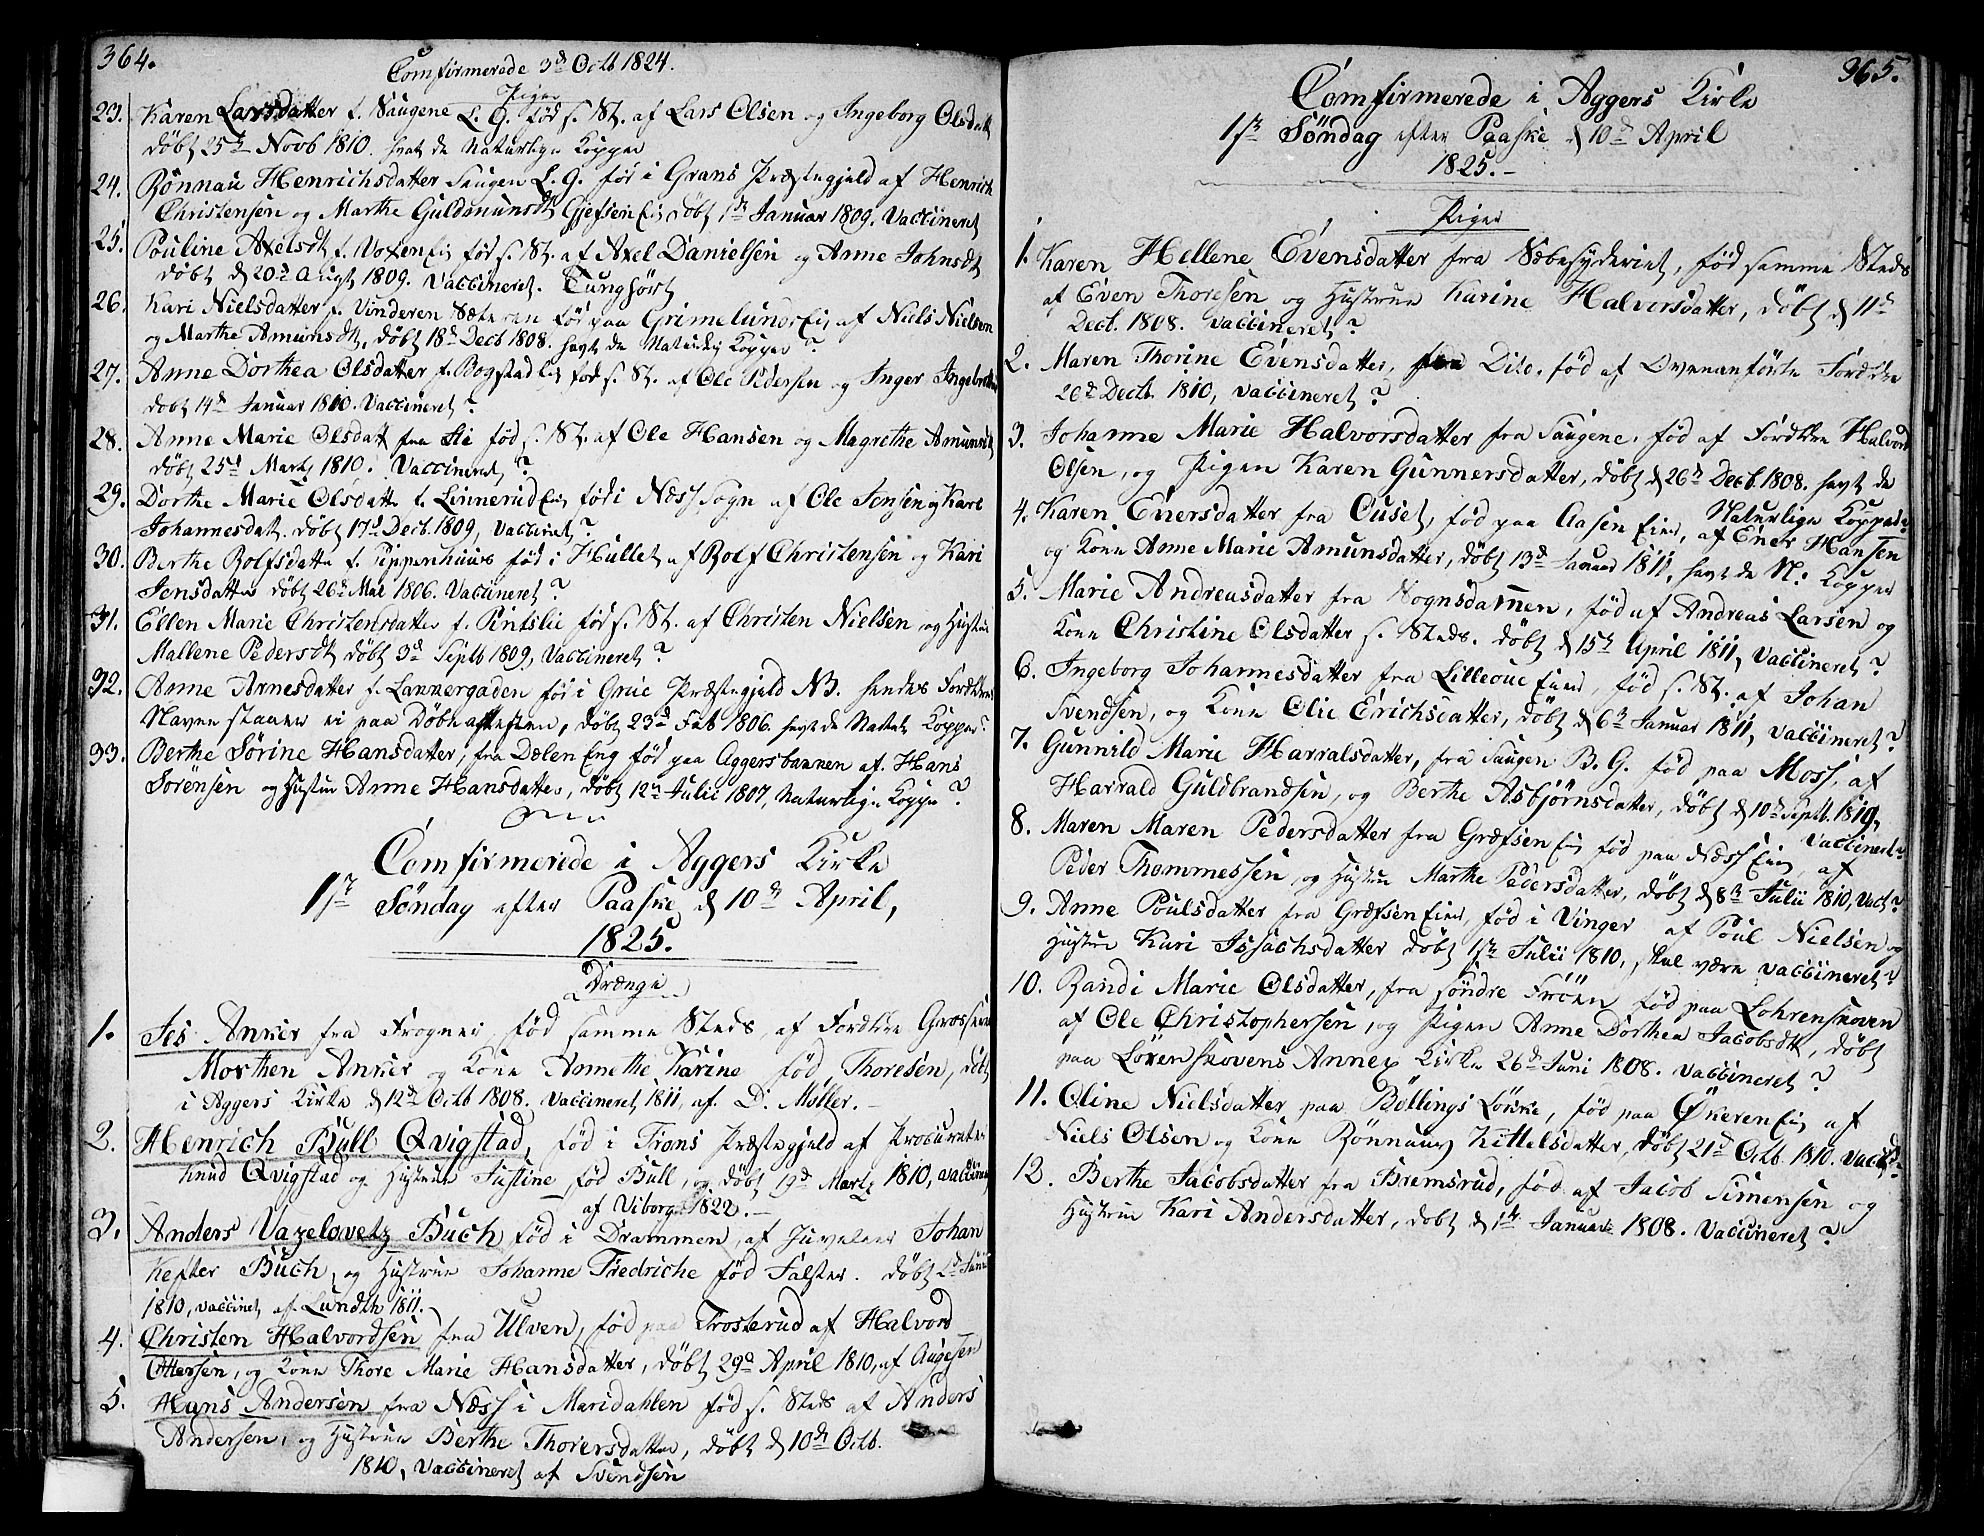 364.
Comfirmerede 3d Octb 1824.
Piger
23. Karen Larsdatter f. Saugene L. G. fød s. St. af Lars Olsen og Ingeborg Olsdatt
døbt 25de Novb 1810. havt de Naturlige Kopper
24. Rönnau Henrichsdatter Saugen L. G. fød i Grans Præstegjeld af Henrich
Christensen og Marthe Guldmundsdt Gjefsen Eie døbt 1ste Januar 1809. Vaccineret
25. Pouline Axelsdt f. Voxen Eie fød s. St. af Axel Danielsen og Anne Johnsdt
døbt d 20de Augt 1809. Vaccineret. Tunghört
26. Kari Nielsdatter f. Vinderen Sæteren fød paa Grimelunds Eie af Niels Nielsen
og Marthe Amunsdt, döbt 18de Decb 1808. havt de Naturlig Kopper?
27. Anne Dorthea Olsdatter f. Bogstad Eie fød s. St. af Ole Pedersen og Inger Ingebretsd
døbt 14de Januar 1810. Vaccineret?
28. Anne Marie Olsdatt fra Lie fød s. St. af Ole Hansen og Magrethe Amunsdt
døbt 25de Marty 1810. Vaccineret?
29. Dorthe Marie Olsdatt f. Linnerud Eie fød i Næss Sogn af Ole Jensen og Kari
Johannesdat. døbt 17d Decb. 1809, Vacciret?
30. Berthe Rolfsdatte f. Pipperhuus fød i Hullet af Rolf Christensen og Kari
Jensdatter døbt 26de Mai 1806. Vaccineret?
31. Ellen Marie Christensdatter f. Pintslie fød s. St. af Christen Nielsen og Hustrue
Mallene Pedersdt döbt 3d Septb 1809, Vaccineret?
32. Anne Arnesdatter f. Lakkergaden fød i Grue Præstegjeld NB. hendes Forældres
Navne staaer ei paa Døbeattesten, døbt 23d Feb 1806. havt de Naturl Kopper?
33. Berthe Sörine Hansdatter, fra Dælen Eng fød paa Aggersbakken af Hans
Sörensen og Hustru Anne Hansdatter, døbt 12te Julii 1807, Naturlige Kopper?
Comfirmerede i Aggers Kirke
1ste Søndag efter Paaske d 10de April,
1825.
Drænge
1. Jes Anker fra Frogner, fød samme Steds, af Forældre Grosserer
Morthen Anker og Kone Annette Karine fød Thoresen, döbt
i Aggers Kirke d 12te Octb 1808. Vaccineret 1811, af D. Møller.
2. Henrich Bull Qvigstad, fød i Froms Præstegjeld af Procurator
Knud Qvigstad og Hustrue Justine fød Bull, og døbt 19d Marty 1810, Vaccineret
af Viborg 1822.
3. Anders Vazelovetz Buch fød i Drammen, af Juveleer Johan
Kefter Buch, og Hustrue Johanne Fredriche fød Falster. døbt 2d Junii
1810, vaccinet af Lundth 1811.
4. Christen Halvordsen fra Ulven, fød paa Trosterud af Halvord
Ottersen, og Kone Thore Marie Hansdatter, døbt 29d April 1810, af Augesen
5. Hans Andersen fra Næss i Maridahlen fød s. Steds af Anders
Andersen, og Hustrue Berthe Thorersdatter, döbt d 10de Octb.
1810, Vaccineret af Svendsen
365.
Comfirmerede i Aggers Kirke
1ste Søndag efter Paaske d 10de April
1825.
Piger
1. Karen Hellene Evensdatter fra Sæbesyderiet, fød samme Steds
af Even Thoresen og Hustrue Karine Halvorsdatter, döbt d 11d
Decb. 1808. Vaccineret?
2. Maren Thorine Evensdatter, fra Dito, fød af Ovenanførte Forældre
26de Decb. 1810, vaccineret?
3. Johanne Marie Halvorsdatter fra Saugene, fød af Forældre Halvord
Olsen, og Pigen Karen Gunnersdatter, døbt d 26de Decb. 1808. havt de
Naturlige Kopper
4. Karen Enersdatter fra Ouset, fød paa Aasen Eie, af Ener Hansen
og Kone Anne Marie Amunsdatter, döbt 13de Januar 1811, havt de N: Kopper
5. Marie Andreasdatter fra Sognsdammen, fød af Andreas Larsen og
Kone Christine Olsdatter s. Steds. döbt d 15de April 1811, Vaccineret?
6. Ingeborg Johannesdatter fra Lilleoue Eier, fød s. St. af Johan
Svendsen, og Kone Olie Erichsdatter, döbt d 6te Januar 1811, vaccineret?
7. Gunnild Marie Harralsdatter, fra Saugen B. G. fød paa Moss, af
Harrald Guldbrandsen, og Berthe Asbjørnsdatter, døbt d 10de Septb. 1810,
Vaccineret?
8. Maren Maren Pedersdatter fra Græfsen Eie fød paa Næss Eie, af
Peder Thommessen, og Hustrue Marthe Pedersdatter, döbt d 8de Julii 1810, Vact?
9. Anne Poulsdatter fra Græfsen Eier, fød i Vinger af Poul Nielsen og
Hustrue Kari Issachsdatter døbt 1ste Julii 1810, skal være vaccineret?
10. Randi Marie Olsdatter, fra söndre Fröen fød paa Lohrenskoven
af Ole Christophersen, og Pigen Anne Dorthea Jacobsdt, døbt
paa Lørenskovens Annex Kirke 26de Juni 1808. Vaccineret?
11. Oline Nielsdatter paa Böllings Løkke, fød paa Økeren Eie af
Niels Olsen og Kone Rönnaug Kittelsdatter, döbt 21de Octb. 1810. Vacci?
12. Berthe Jacobsdatter fra Bremsrud, fød af Jacob Simensen og
Hustrue Kari Andersdatter, døbt d 1ste Januar 1808. Vaccineret?